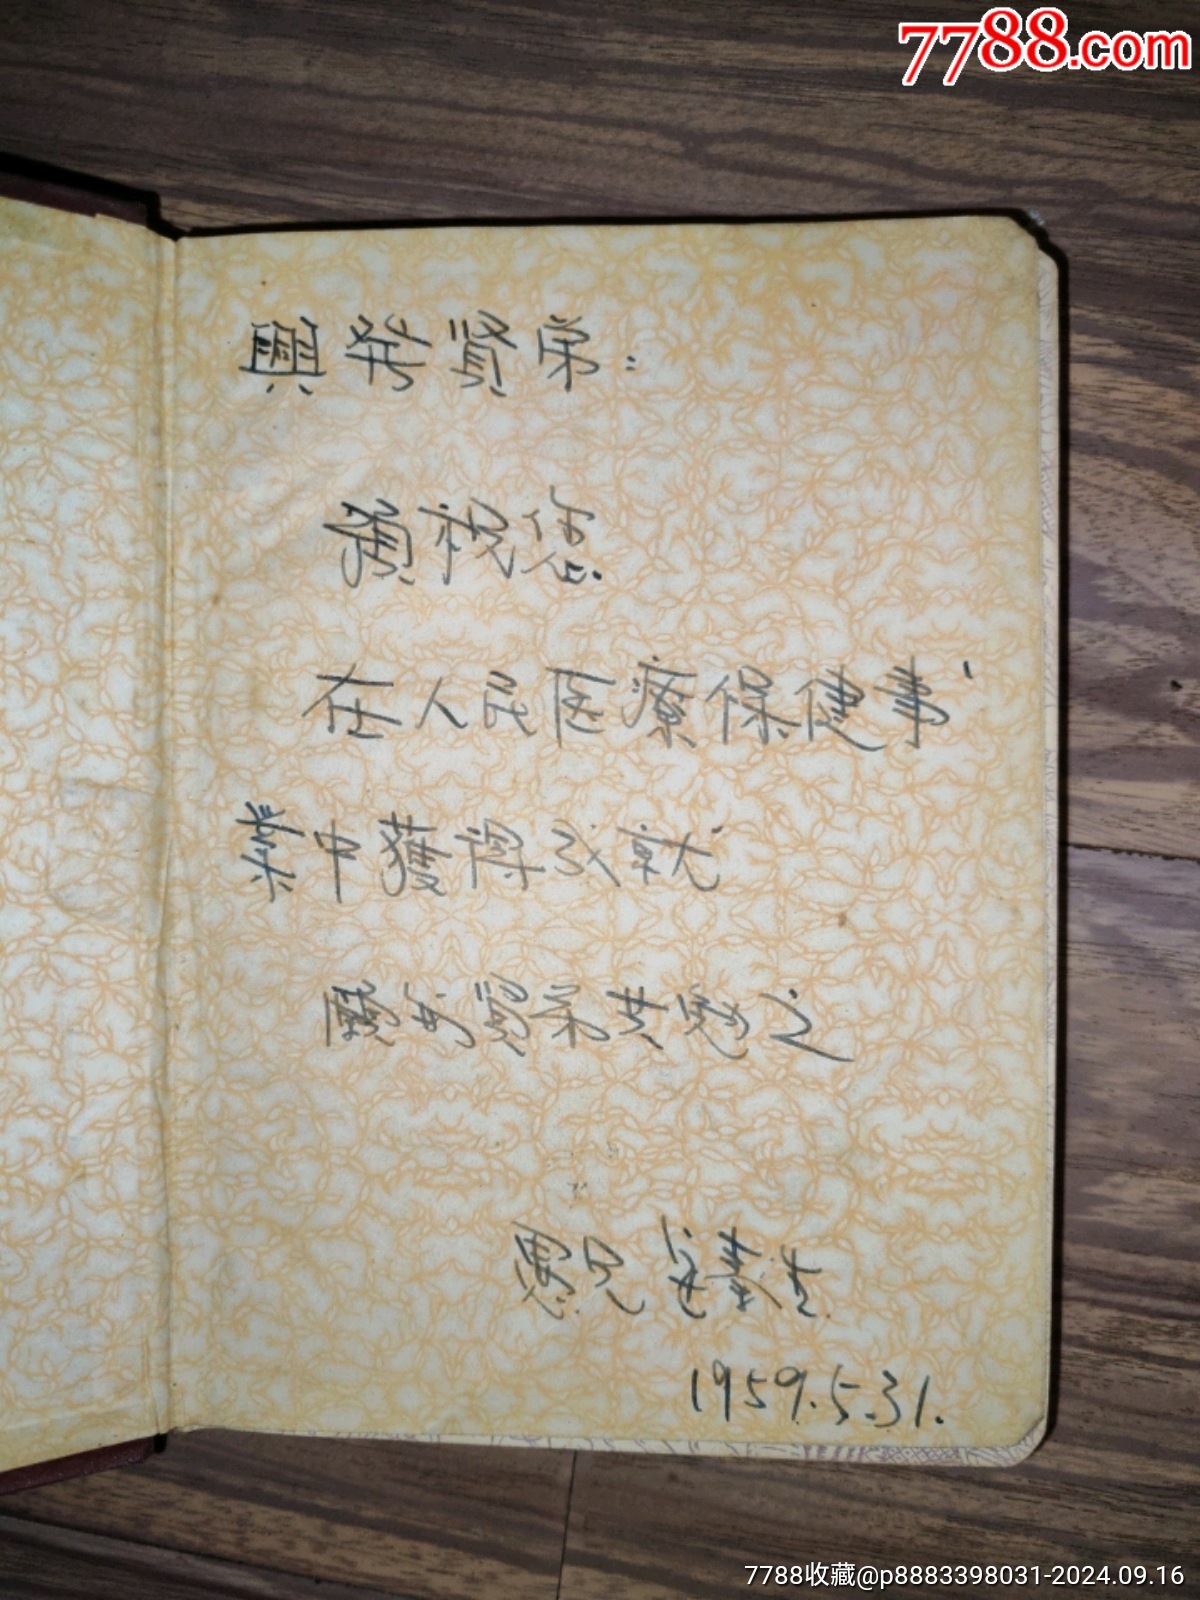 7788.com
興发贤弟：
預祝您
在人民医療保健事
業中獲得成就
願與贤弟共勉之
愚兄 生
1959.5.31.
7788收藏@p8883398031-2024.09.16